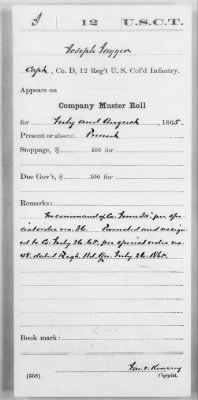 12 U.S.C.T.
Joseph
Capt., Co. D, 12 Reg't U. S. Col'd Infantry.
Appears on
Company Muster Roll
for July and August, 1865.
Present or absent Present
Stoppage, $ 100 for
Due Gov't, $ 100 for
Remarks:
In command of Co. from per spe
cial order no. 36. Promoted and assign
ed to Co. July 26. 65. per special order no.
48. dated Regt. Hd. Qrs. July 26. 1865.
Book mark:
(358)
Copyist.